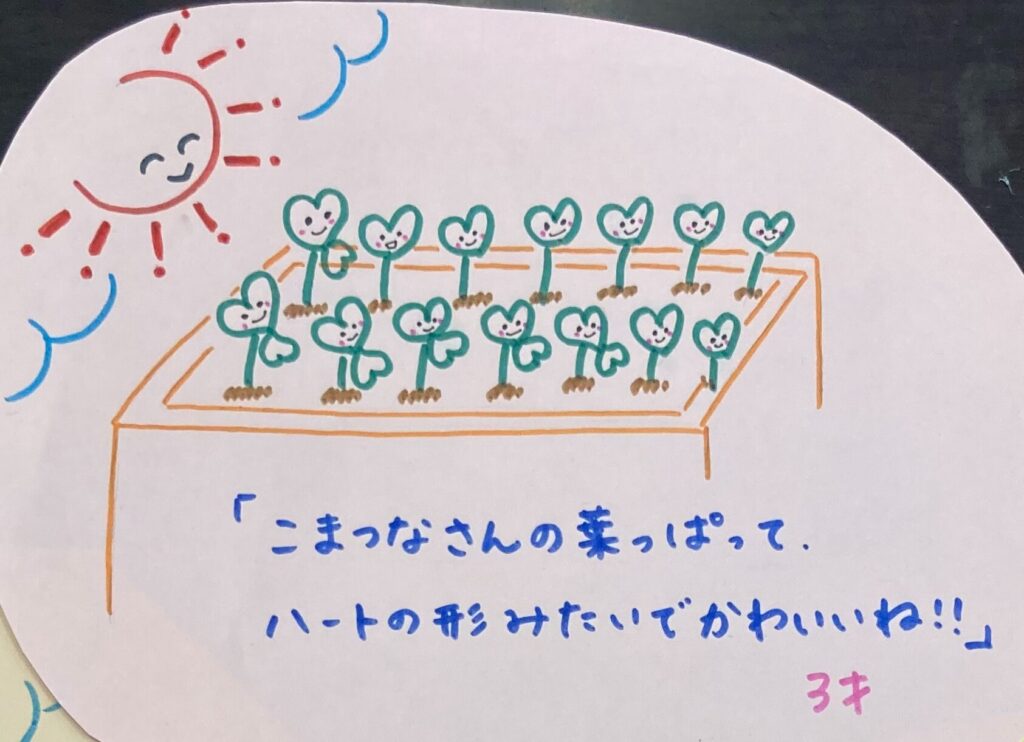 「こまつなさんの葉っぱって、
ハートの形みたいでかわいいね!!」
3才